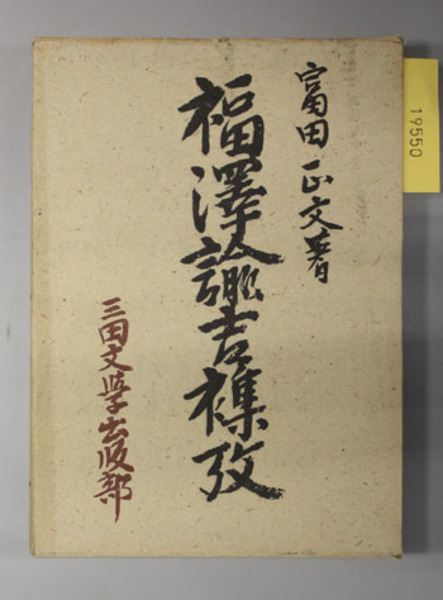 富田正文著
福澤諭吉襍攷
三田文学出版部
19550